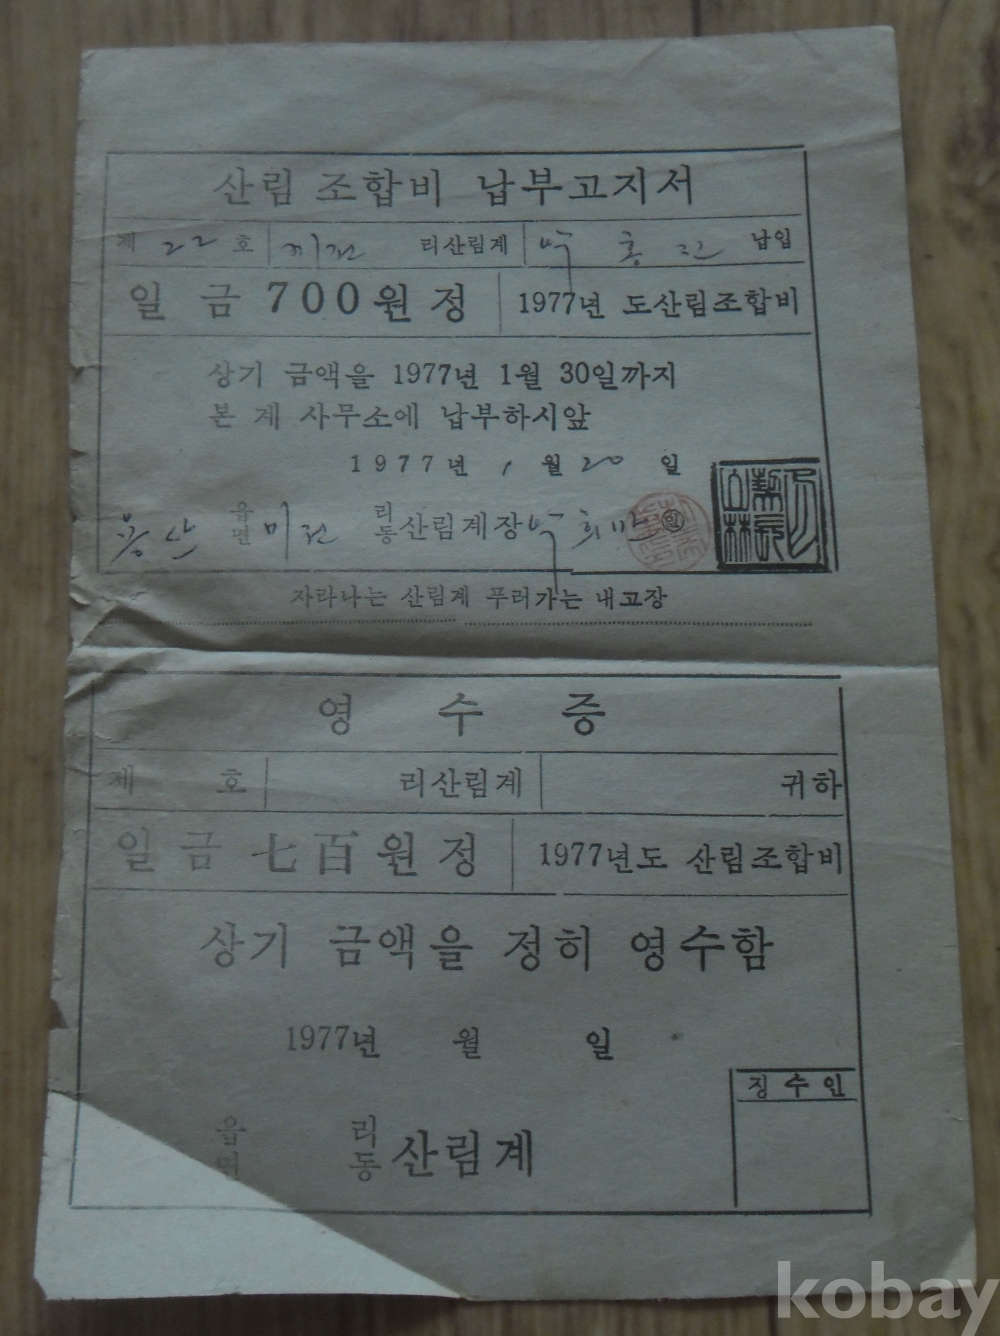 산림 조합비 납부고지서
제 22 호 미전 리산림계 박홍 납입
일금 700원정 1977년 도산림조합비
상기 금액을 1977년 1월 30일까지
본 계 사무소에 납부하시앞
1977년 1월 20일
용산 읍면 미전 리동 산림계장 박희만 인
자라나는 산림계 푸러가는 내고장
영수증
제 호 리산림계 귀하
일금 七百원정 1977년도 산림조합비
상기 금액을 정히 영수함
1977년 월 일
징수인
읍면 리동 산림계
kobay